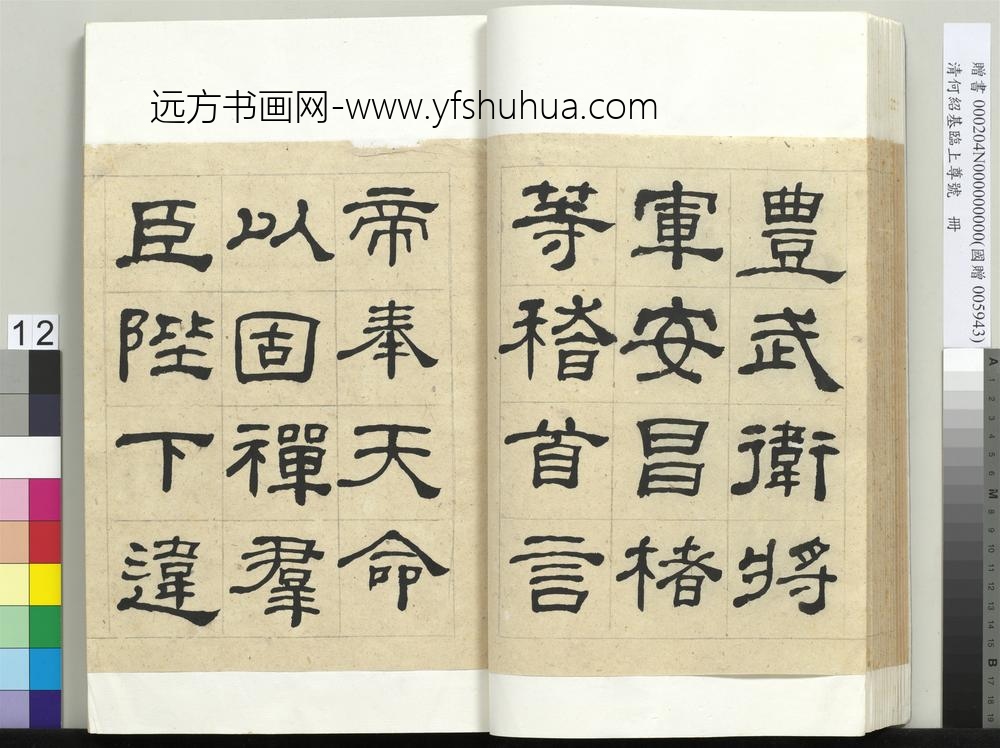 远方书画网-www.yfshuhua.com
豊武衛將
軍安昌楮
等稽首言
帝奉天命
以固禪羣
臣陛下違
贈書 000204N000000000(國贈 005943)
清何紹基臨上尊號 冊
12
A 1 2 3 4 5 6 M 8 9 10 11 12 13 14 15 B 17 18 19